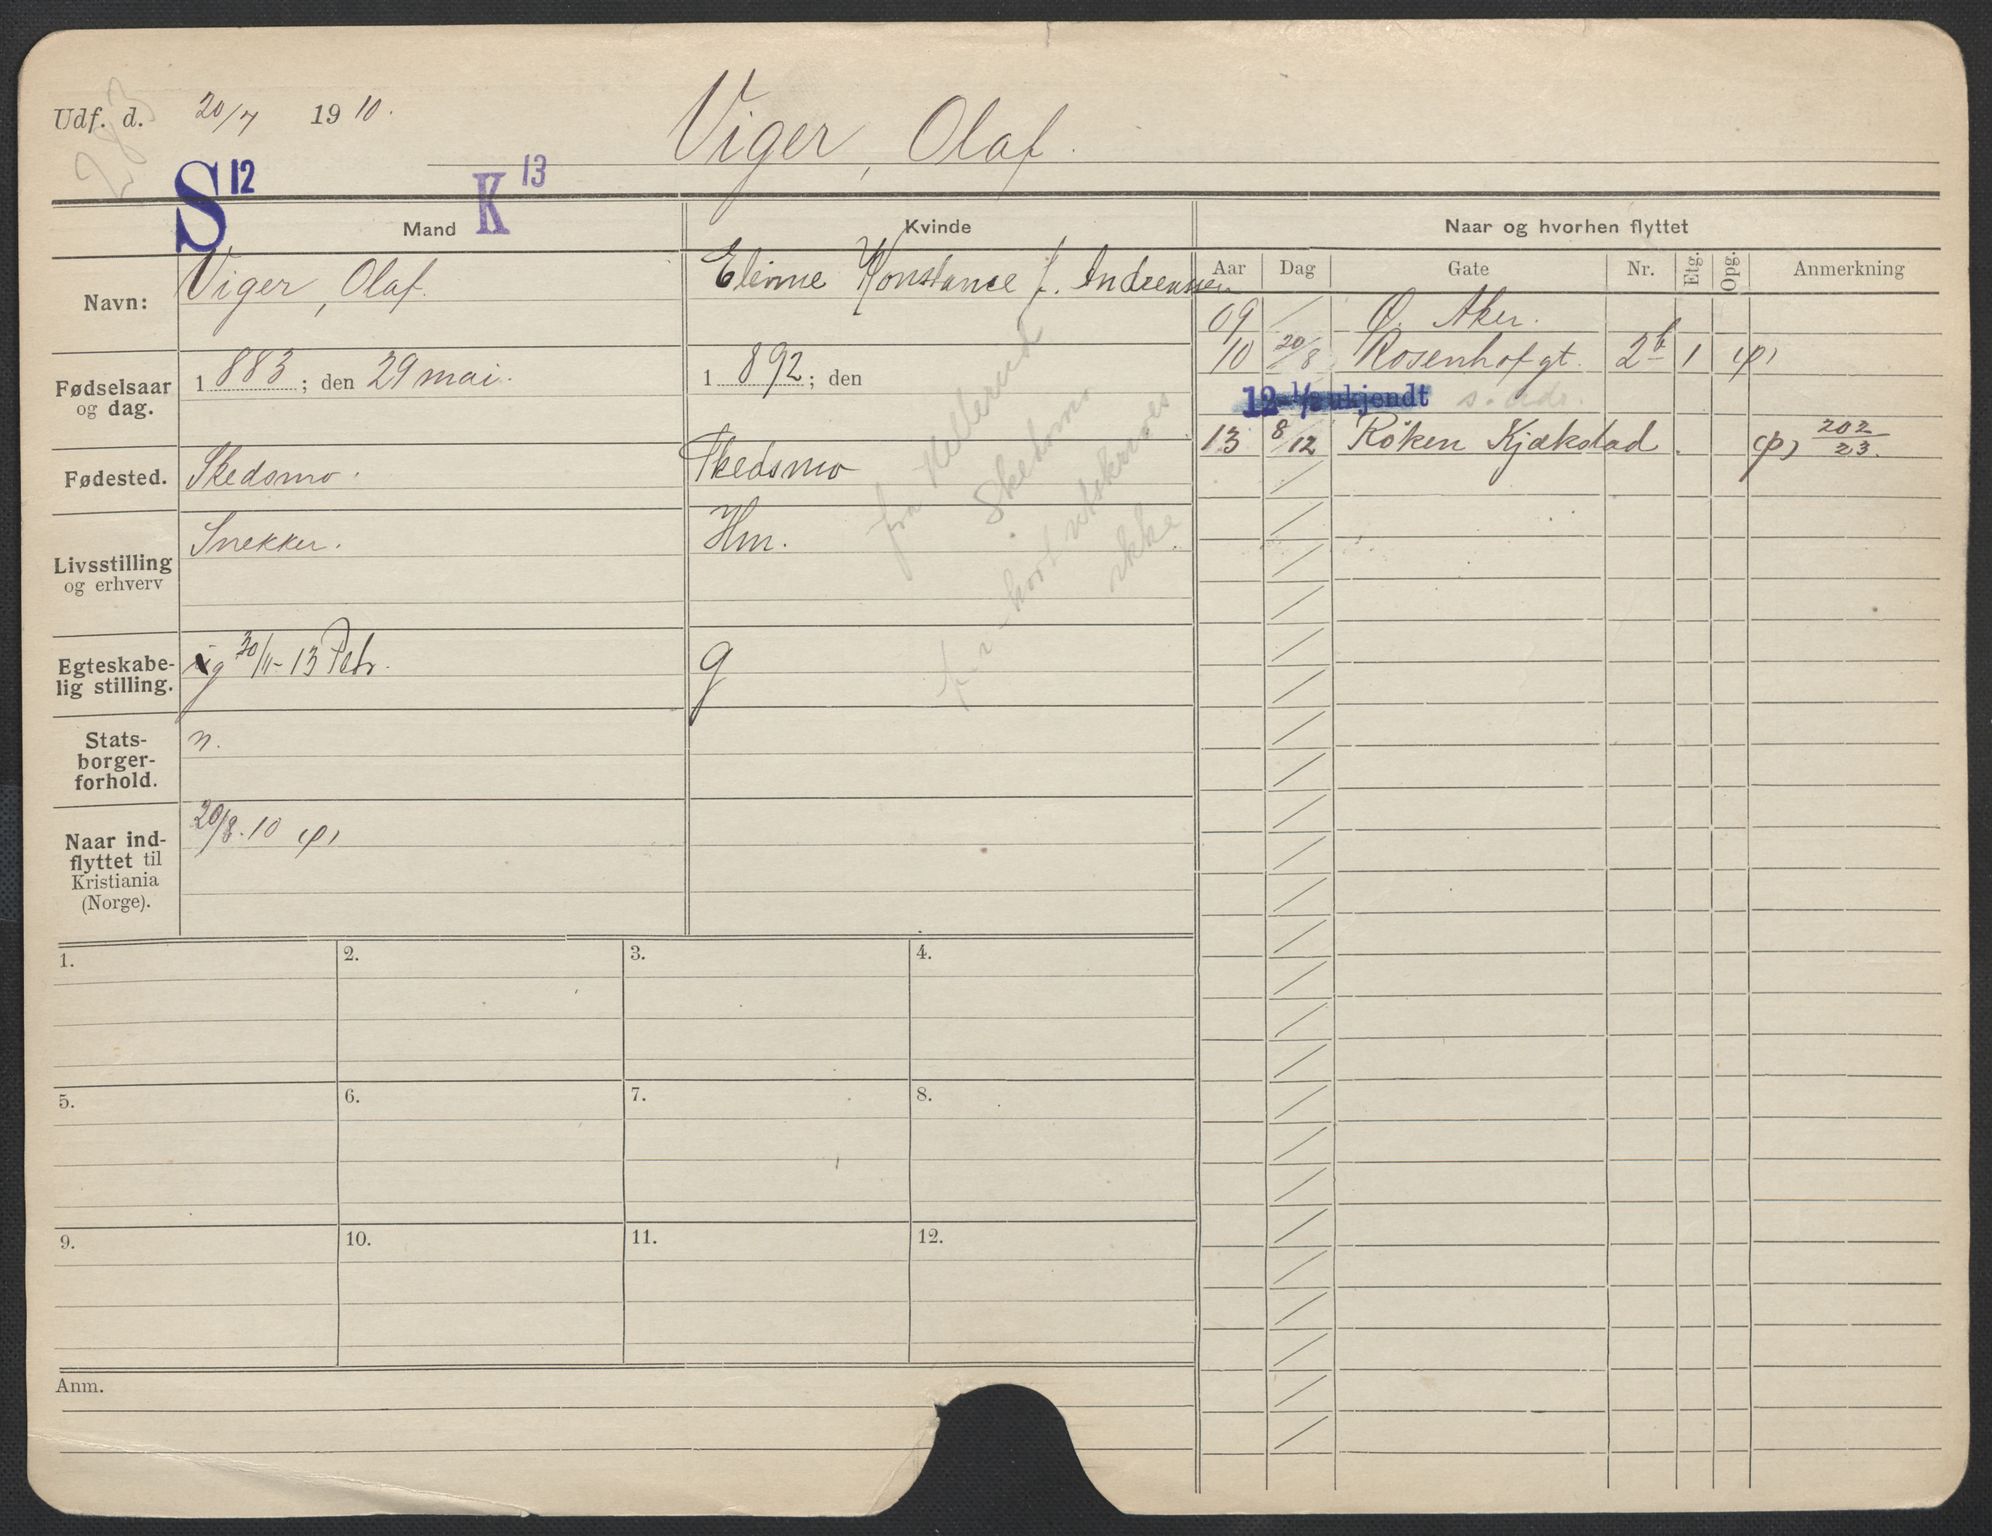 Udf. d. 20/7 1910.
Viger, Olaf.
283
S 12
K 13
Mand
Kvinde
Naar og hvorhen flyttet
Aar
Dag
Gate
Nr.
Etg.
Opg.
Anmerkning
Navn:
Viger, Olaf.
Konstance f. Andreassen
Fødselsaar
og dag.
1883; den 29 mai.
1892; den
Fødested.
Skedsmo.
Skedsmo
Livsstilling
og erhverv
Snekker.
Hm.
Egteskabe-
lig stilling.
g 30/11-13 Petr.
g
Stats-
borger-
forhold.
n.
Naar ind-
flyttet til
Kristiania
(Norge).
20/8.10 (p)
fra Hellerud
Skedsmo
ikke
09 Ø. Aker.
10 20/8 Rosenhofgt. 2b 1 (p)
12 1/2 ukjendt s. adr.
13 8/12 Røken Kjækstad. (p) 202/23.
1.
2.
3.
4.
5.
6.
7.
8.
9.
10.
11.
12.
Anm.